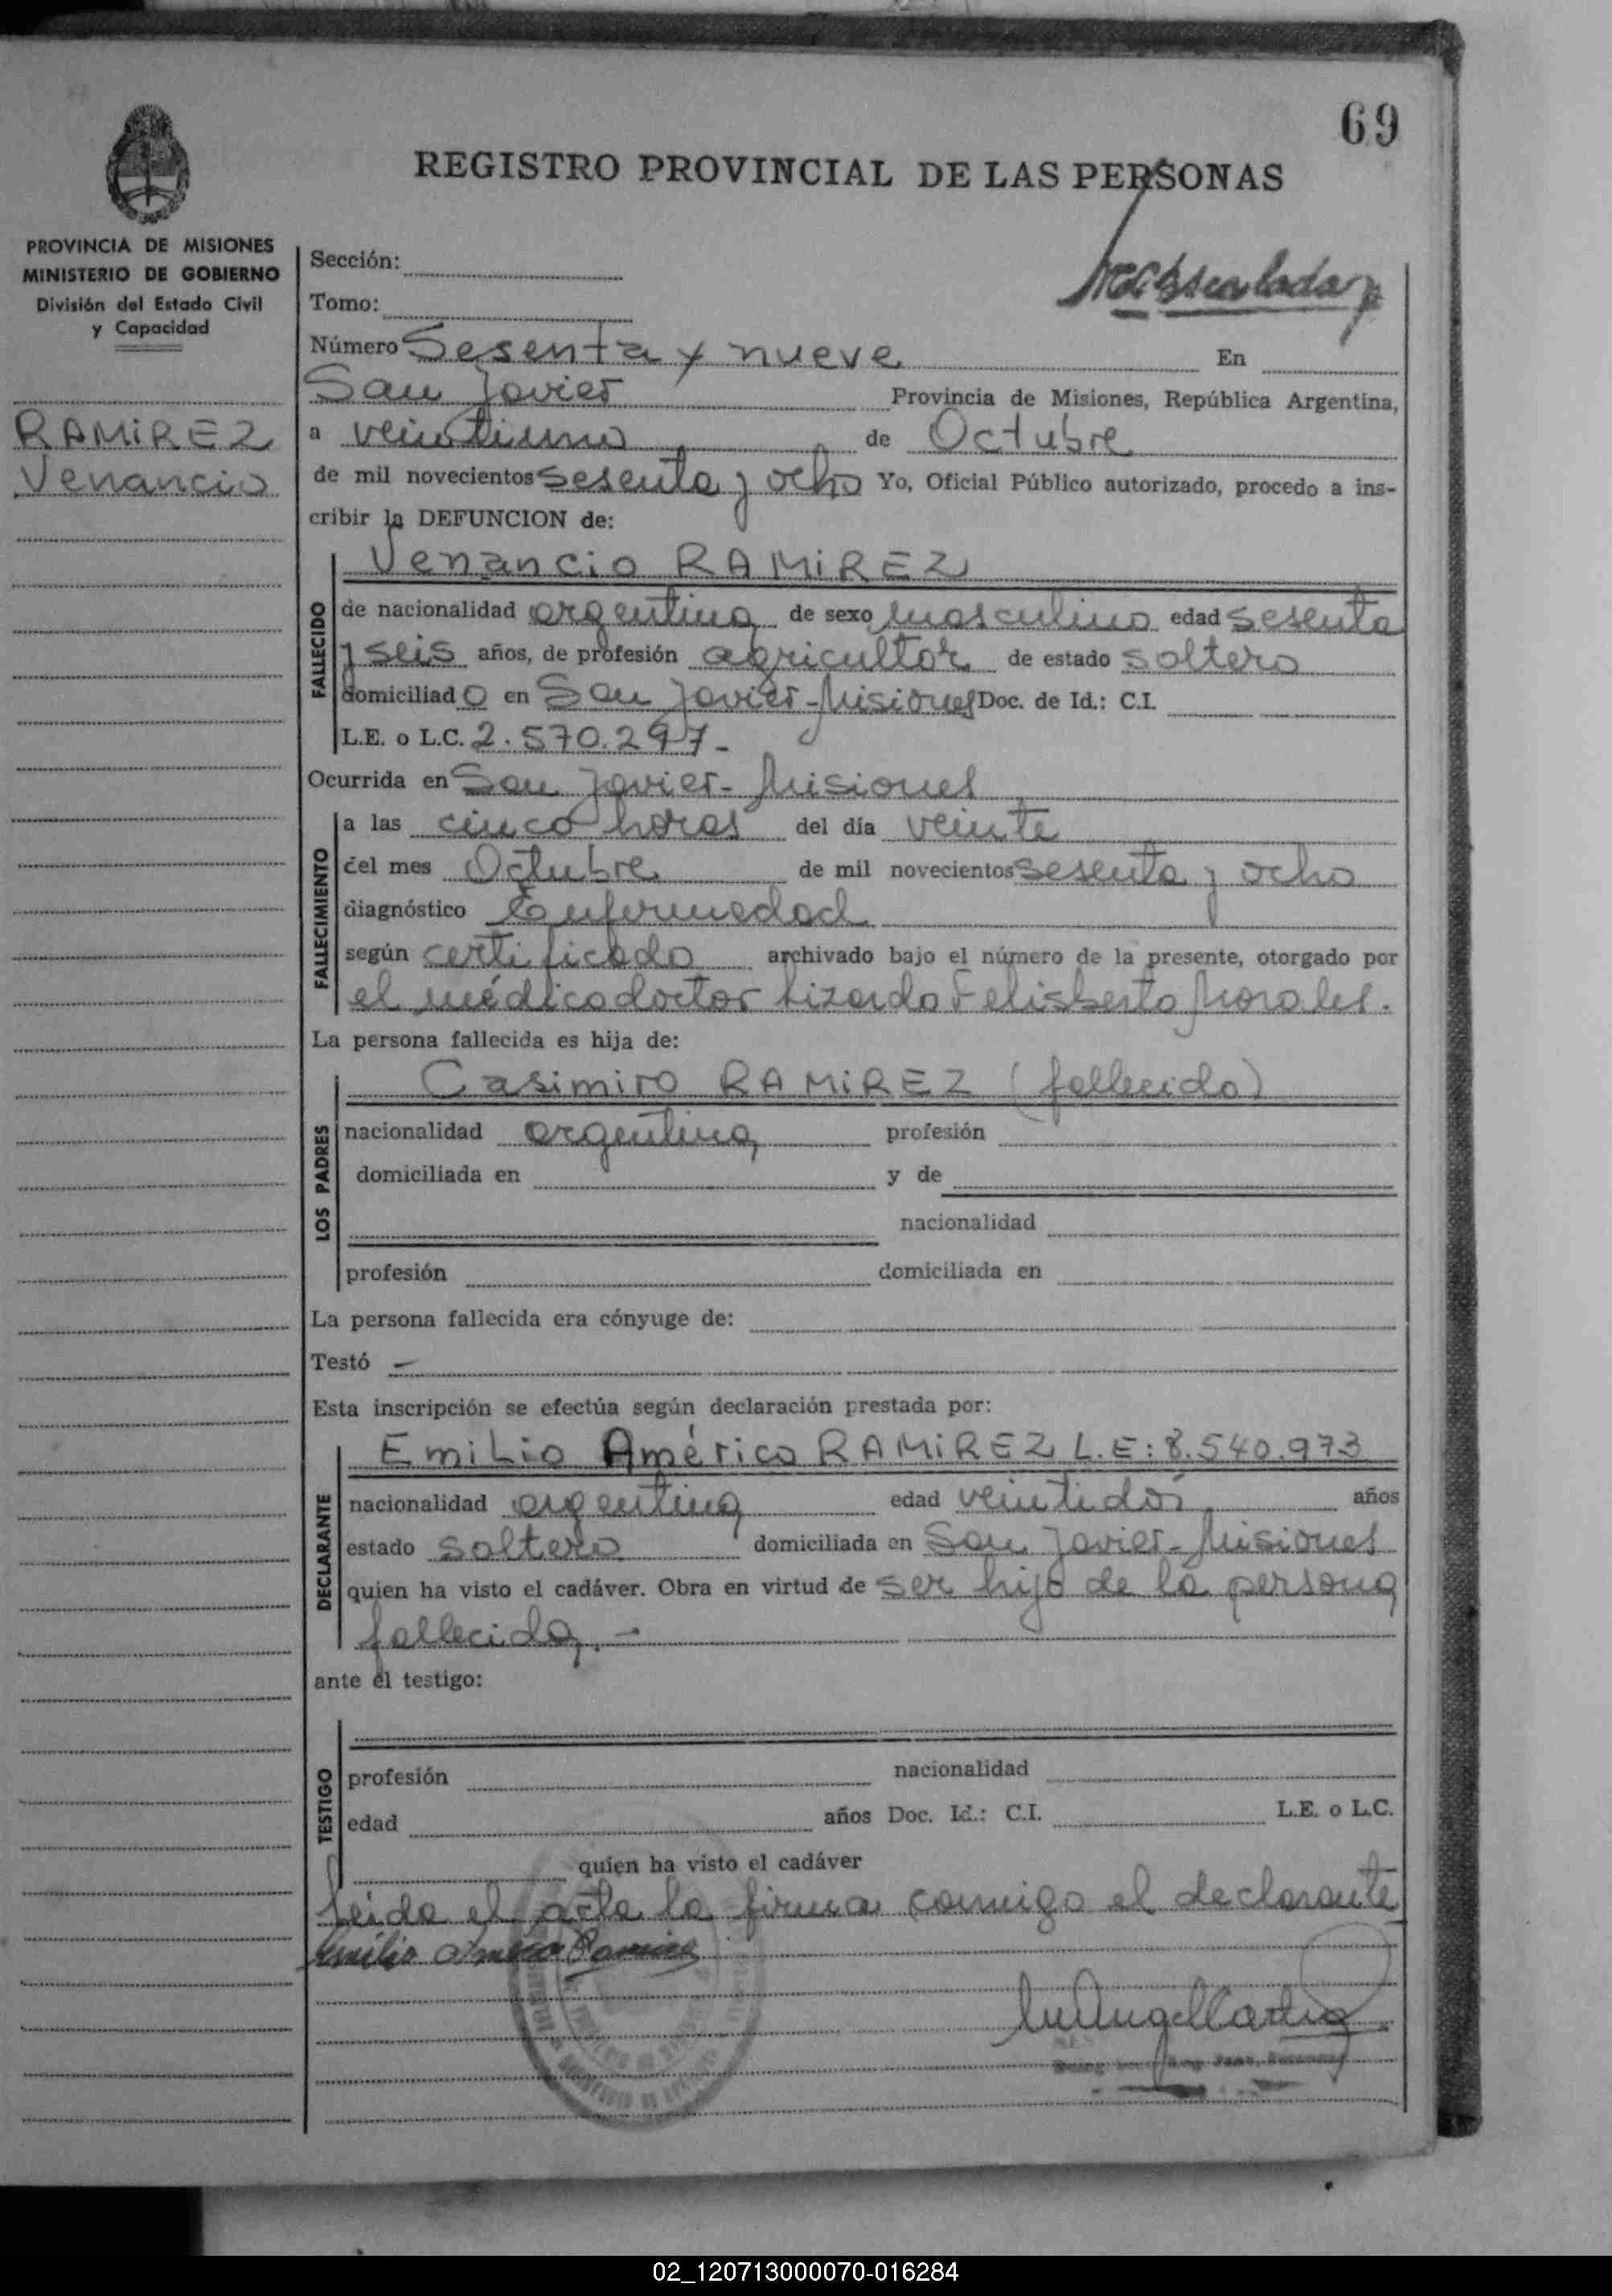 69
REGISTRO PROVINCIAL DE LAS PERSONAS
PROVINCIA DE MISIONES
MINISTERIO DE GOBIERNO
División del Estado Civil
y Capacidad
RAMIREZ
Venancio
Sección:
Tomo:
Número Sesenta y nueve En
San Javier Provincia de Misiones, República Argentina,
a veintiuno de Octubre
de mil novecientos sesenta y ocho Yo, Oficial Público autorizado, procedo a ins-
cribir la DEFUNCION de:
Venancio RAMIREZ
FALLECIDO
de nacionalidad argentina de sexo masculino edad sesenta
y seis años, de profesión agricultor de estado soltero
domiciliado en San Javier-Misiones Doc. de Id.: C.I.
L.E. o L.C. 2.570.297-
Ocurrida en San Javier-Misiones
FALLECIMIENTO
a las cinco horas del día veinte
del mes Octubre de mil novecientos sesenta y ocho
diagnóstico Enfermedad
según certificado archivado bajo el número de la presente, otorgado por
el médico doctor Lizardo Felisberto Morales.
La persona fallecida es hija de:
LOS PADRES
Casimiro RAMIREZ (fallecido)
nacionalidad argentina profesión
domiciliada en y de
nacionalidad
profesión domiciliada en
La persona fallecida era cónyuge de:
Testó -
Esta inscripción se efectúa según declaración prestada por:
DECLARANTE
Emilio Américo RAMIREZ L.E: 8.540.973
nacionalidad argentina edad veintidós años
estado soltero domiciliada en San Javier-Misiones
quien ha visto el cadáver. Obra en virtud de ser hijo de la persona
fallecida.-
ante el testigo:
TESTIGO
profesión nacionalidad
edad años Doc. Id.: C.I. L.E. o L.C.
quien ha visto el cadáver
Leida el acta la firma conmigo el declarante
Emilio Americo Ramirez
02_120713000070-016284